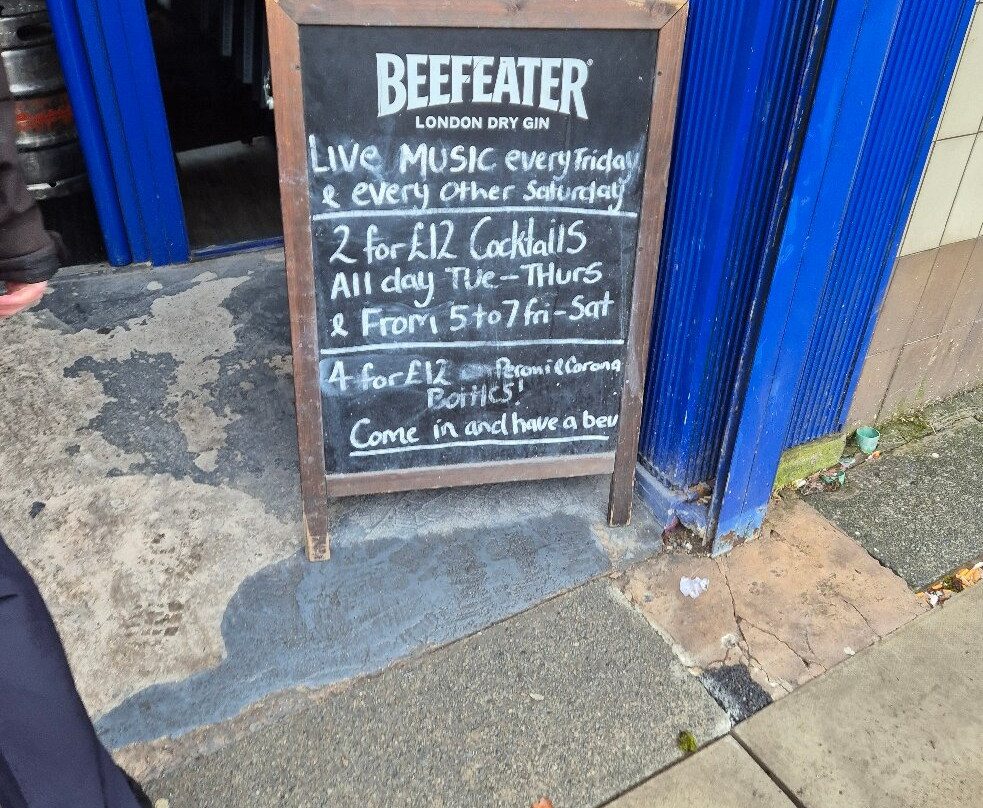 BEEFEATER
LONDON DRY GIN
LIVe MUSIC every Friday
& every Other Saturday
2 for £12 Cocktails
All day Tue-THurs
& From 5 to 7 fri-Sat
4 for £12 Peroni & Corona
Bottles!
Come in and have a bev